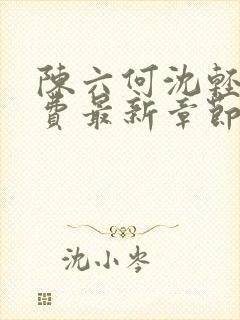 陳六何沈輕
費最新章節
沈小岑